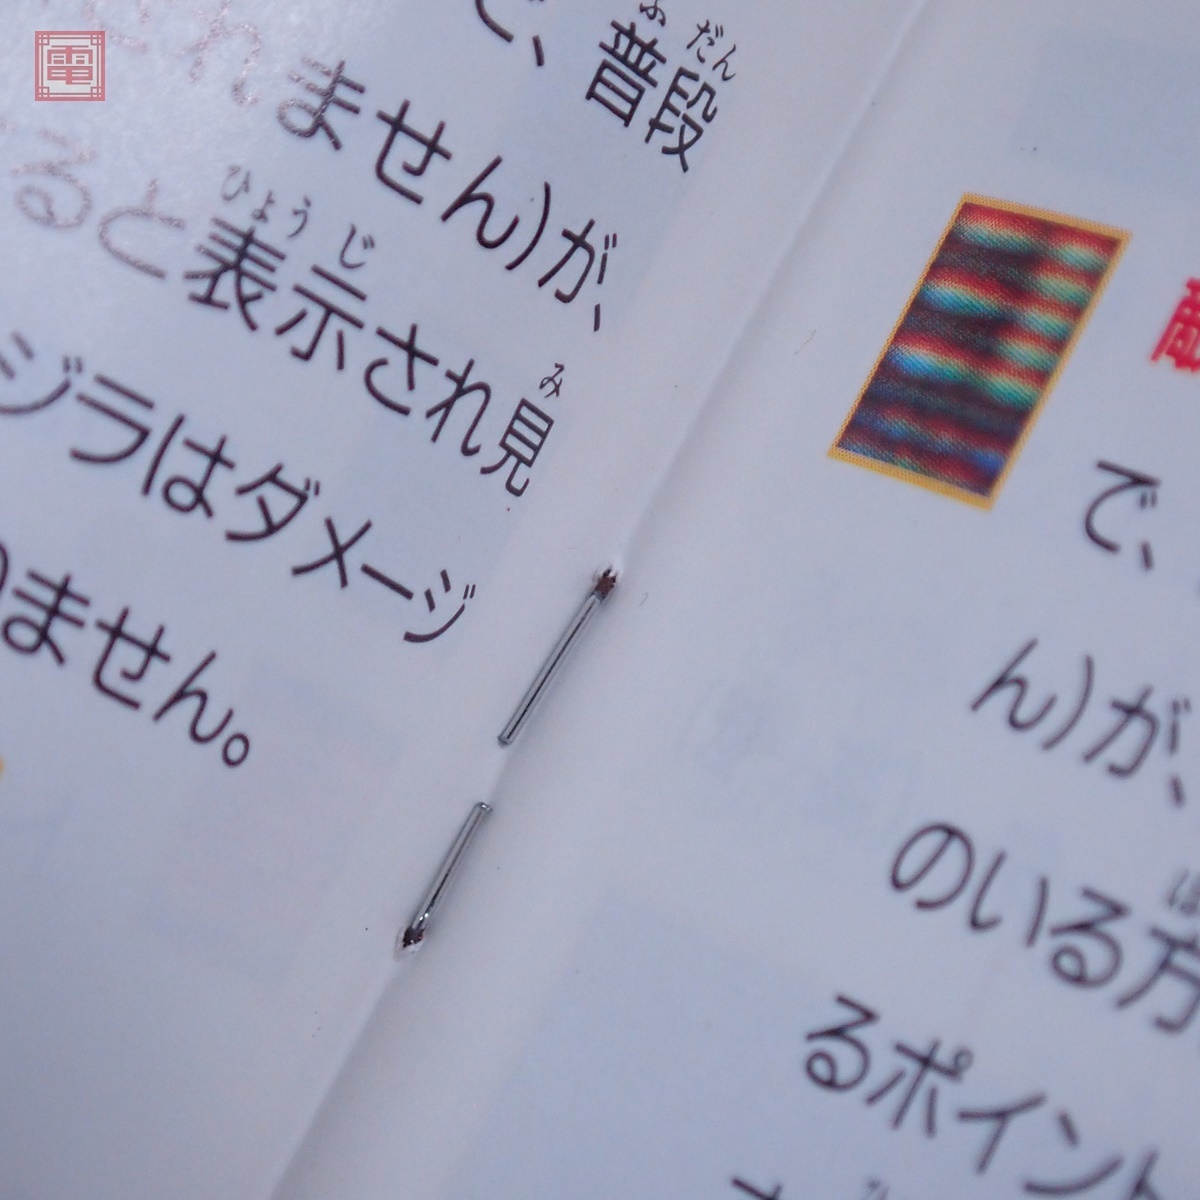 電
で、普段
ふだん
れません)が、
ると表示され見
ひょうじ
み
ジラはダメージ
りません。
で、
ん)が、
のいる方
るポイント